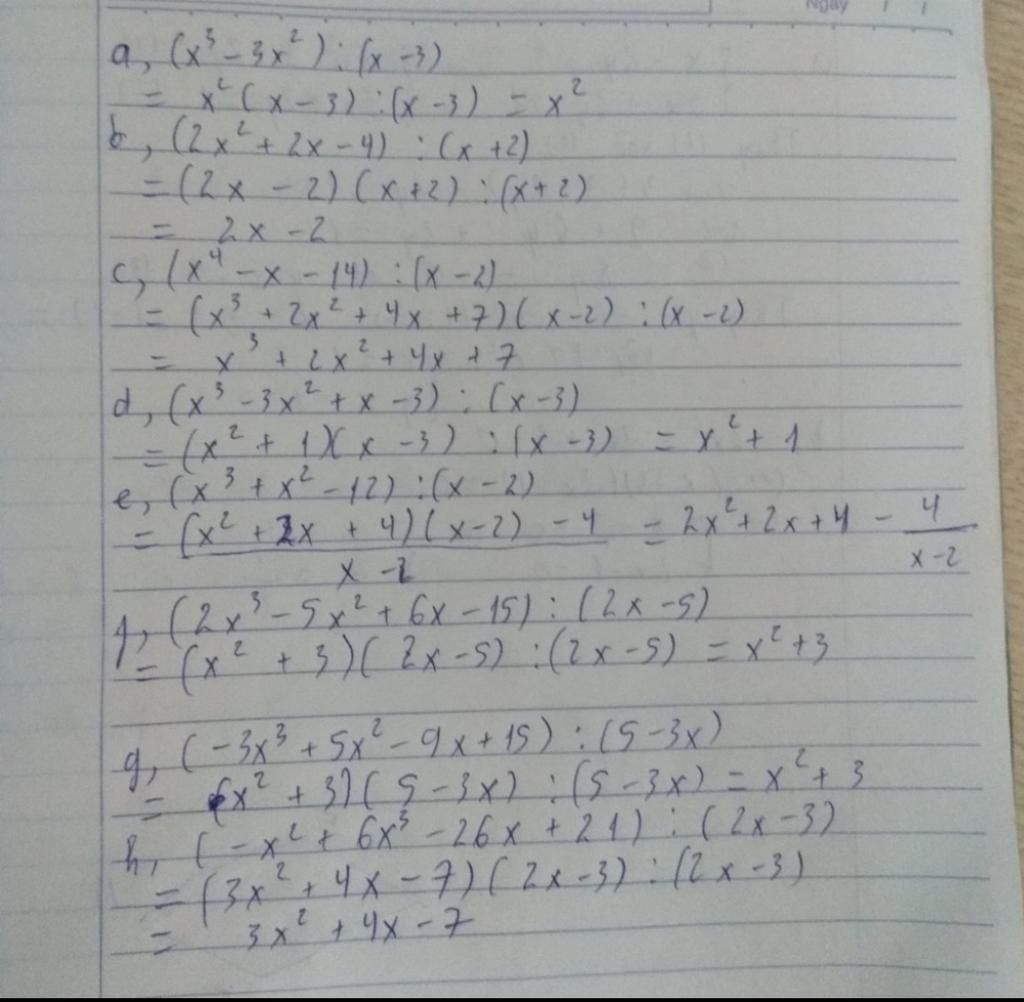 Ngày / /
a, (x³ - 3x²) : (x - 3)
= x²(x - 3) : (x - 3) = x²
b, (2x² + 2x - 4) : (x + 2)
= (2x - 2)(x + 2) : (x + 2)
= 2x - 2
c, (x⁴ - x - 14) : (x - 2)
= (x³ + 2x² + 4x + 7)(x - 2) : (x - 2)
= x³ + 2x² + 4x + 7
d, (x³ - 3x² + x - 3) : (x - 3)
= (x² + 1)(x - 3) : (x - 3) = x² + 1
e, (x³ + x² - 12) : (x - 2)
= (x² + 2x + 4)(x - 2) - 4 / x - 2 = 2x² + 2x + 4 - 4 / x - 2
f, (2x³ - 5x² + 6x - 15) : (2x - 5)
= (x² + 3)(2x - 5) : (2x - 5) = x² + 3
g, (-3x³ + 5x² - 9x + 15) : (5 - 3x)
= (x² + 3)(5 - 3x) : (5 - 3x) = x² + 3
h, (-x² + 6x³ - 26x + 21) : (2x - 3)
= (3x² + 4x - 7)(2x - 3) : (2x - 3)
= 3x² + 4x - 7